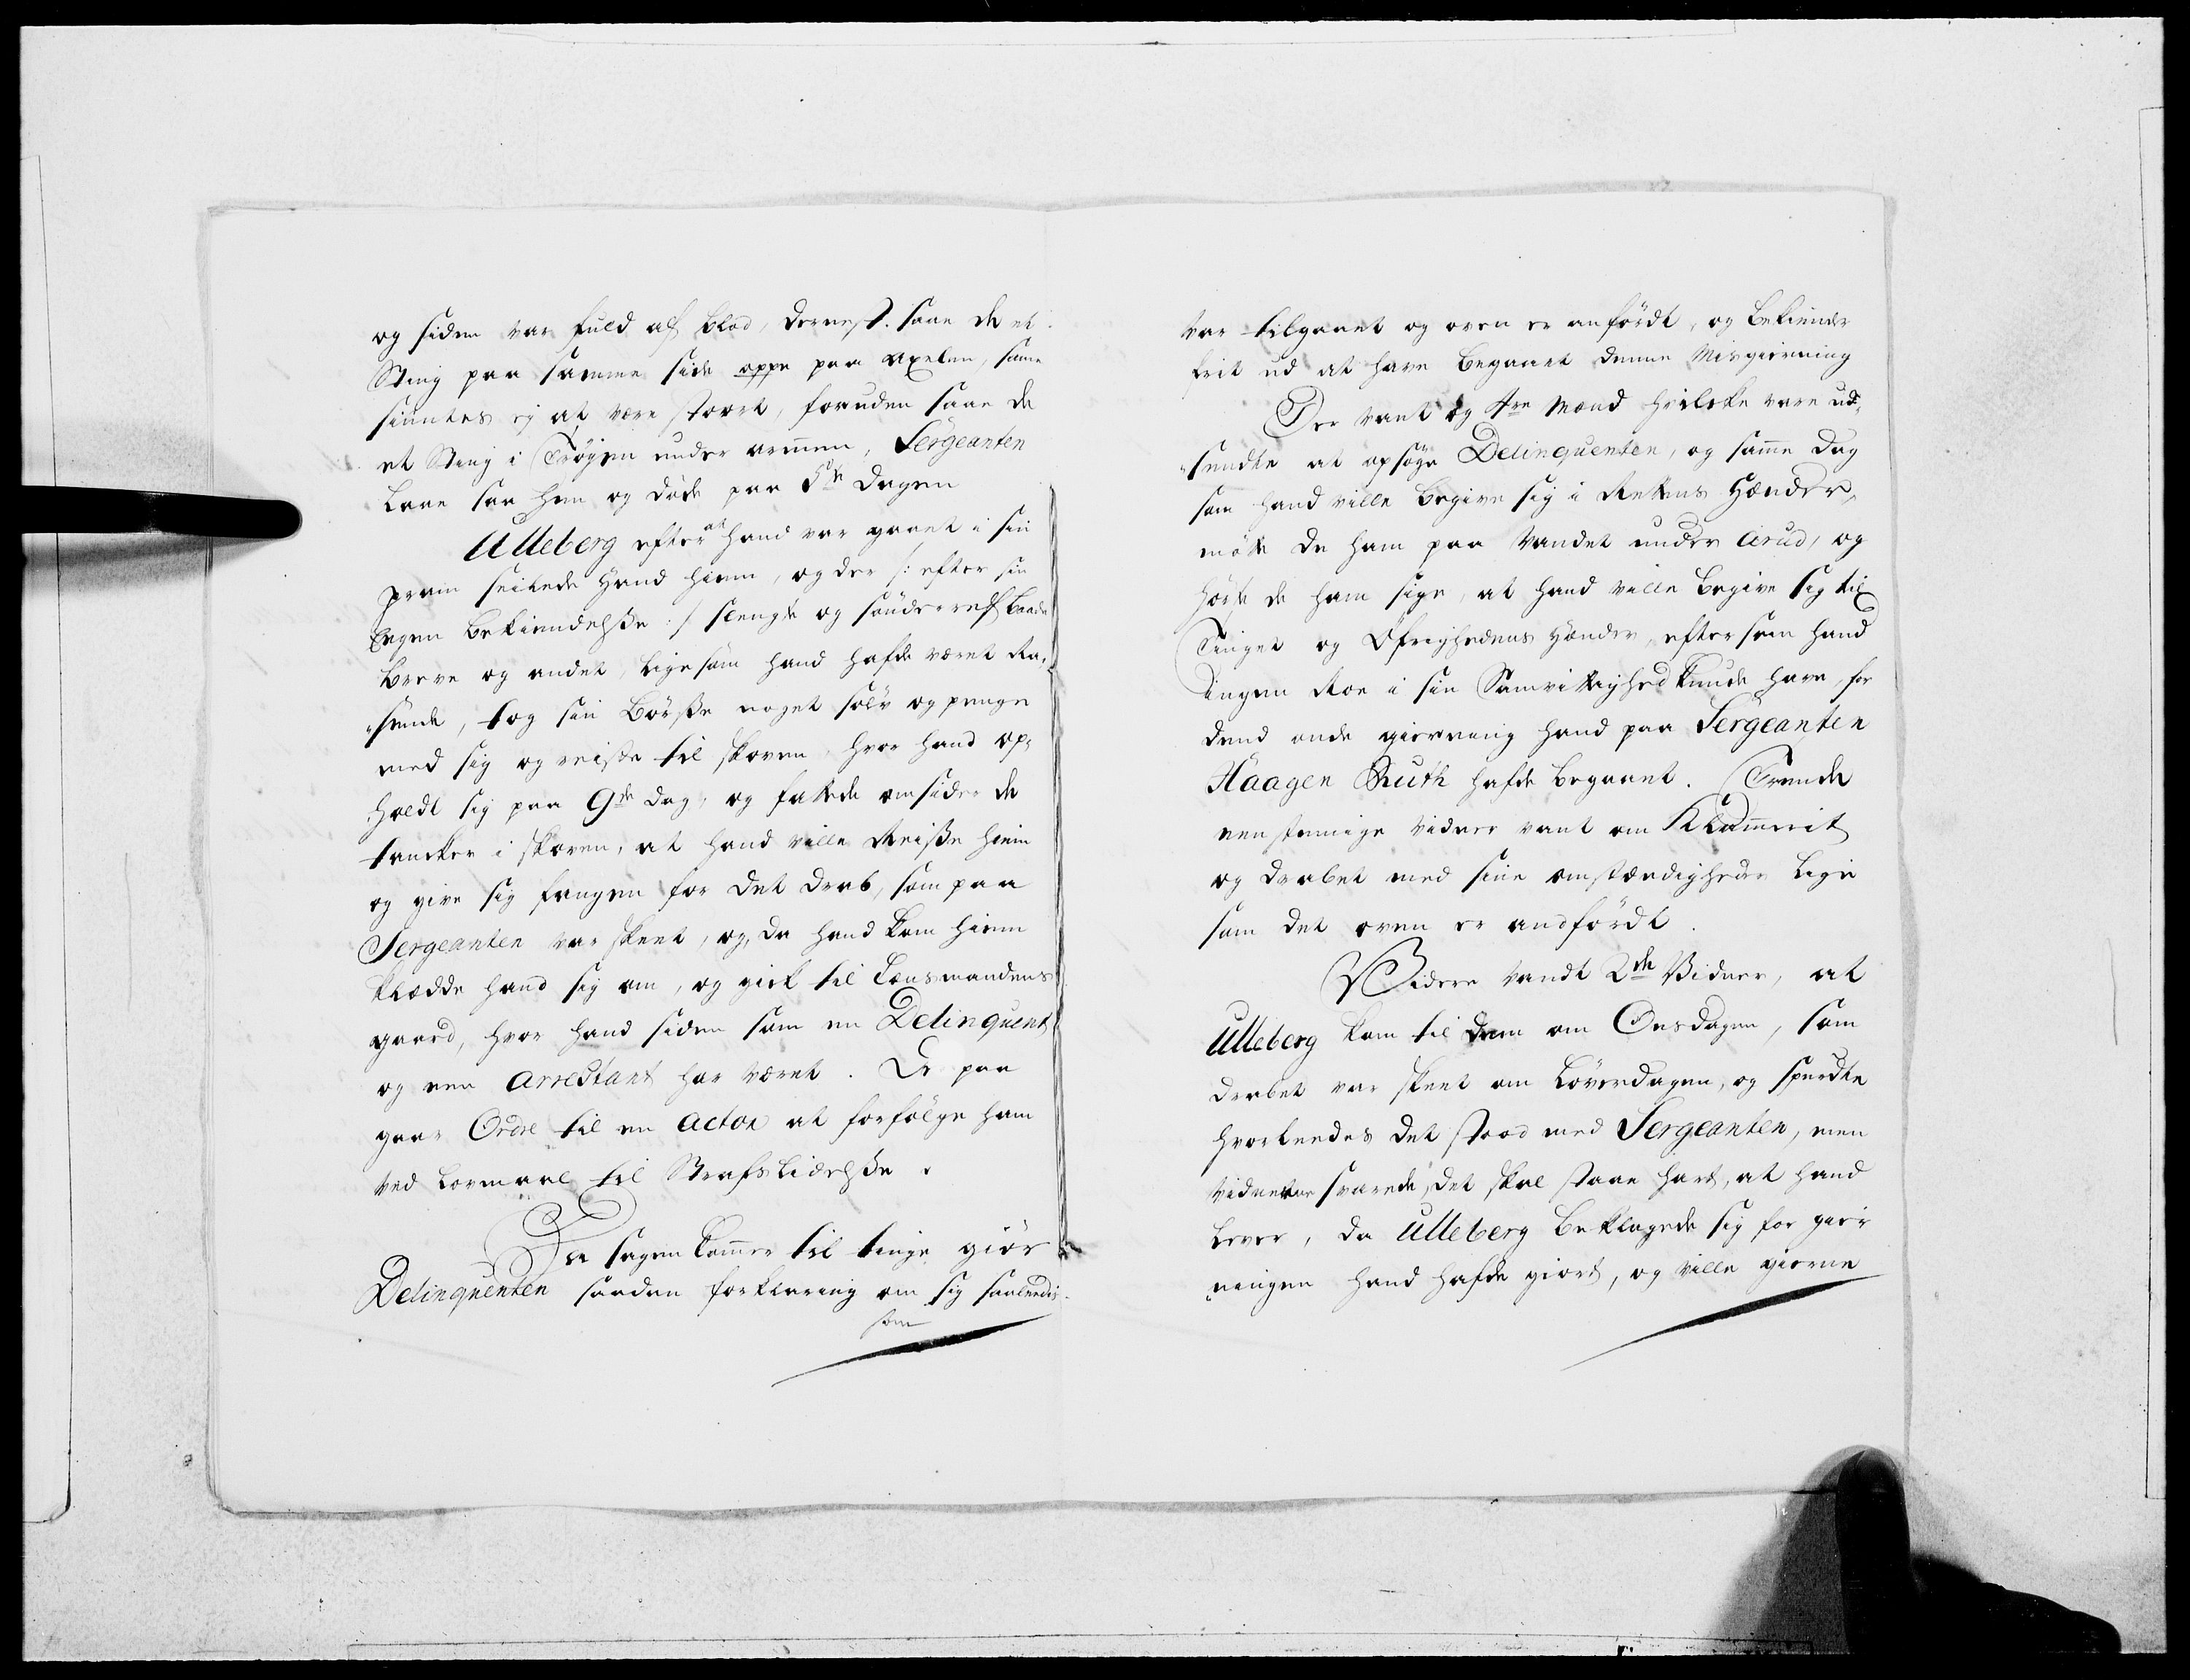 og siden var fuld af blod, dernest saae de et
Sting paa samme side oppe paa axelen, same
siuntes ej at være stoort, foruden saae de
et Sting i Trøyen under armen, Sergeanten
laae saa hen og døde paa 5te dagen
Ulleberg efter at hand var gaaet i sin
pram seilede hand hiem, og der /: efter sin
Egen bekiendelsse :/ slengte og sønderref baade
breve og andet, ligesom hand hafde været Ra-
sende, tog sin Børsse noget sølv og penge
med sig og reiste til skoven, hvor hand op-
holdt sig paa 9de dag, og fattede omsider de
tancker i skoven, at hand ville Reisse hiem
og give sig fangen for det drab, som paa
Sergeanten var skeet, og, da hand kom hiem
klædde hand sig om, og gick til Lensmandens
gaard, hvor hand siden som en Delinquent
og een Arrestant har været. Er paa
gaar Ordre til en Actor at forfølge ham
ved Lovmaal til Strafs Lidelsse.
Da sagen kommer til tinge giør
Delinquenten saadan forklaring om sig saaledis
som
var tilgaaet og oven er anført, og bekiender
frit ud at have begaaet denne Misgierning
Der vant og 4re Mænd hvilcke vare ud-
sendte at opsøge Delinquenten, og samme dag
som hand ville begive sig i Rettens Hænder,
møtte de ham paa Vandet under Arud, og
hørte de ham sige, at hand ville begive sig til
Tinget og Øfrighedens Hænder, eftersom hand
ingen Roe i sin Samvittighed kunde have, for
dend onde gierning hand paa Sergeanten
Haagen Ruth hafde begaaet. Trende
eenstemige vidner vant om Klammerit
og drabet med sine omstændigheder lige
som det oven er andført.
Videre vandt 2de Vidner, at
Ulleberg kom til dem om Onsdagen, som
drabet var skeet om Løverdagen, og spurdte
hvorledes det stood med Sergeanten, men
vidnerne svarede, det skal staae hart, at hand
lever, da Ulleberg beklagede sig for gier-
ningen hand hafde giort, og ville gierne